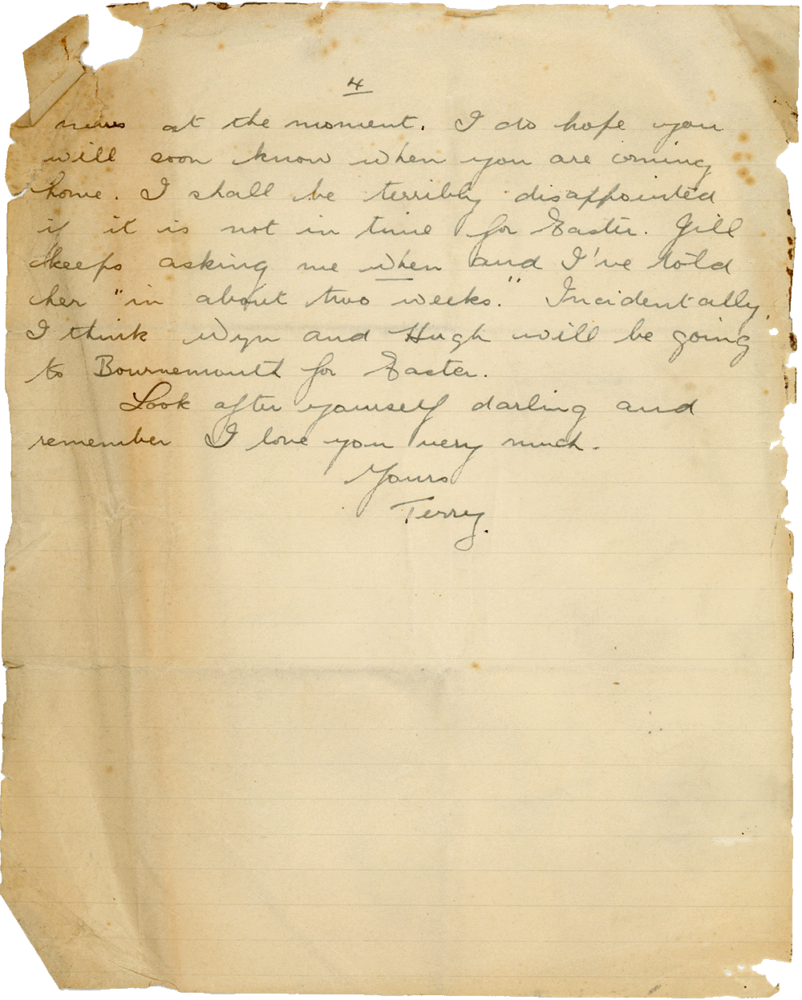 4
news at the moment. I do hope you
will soon know when you are coming
home. I shall be terribly disappointed
if it is not in time for Easter. Gill
keeps asking me when and I've told
her "in about two weeks." Incidentally,
I think Wyn and Hugh will be going
to Bournemouth for Easter.
Look after yourself darling and
remember I love you very much.
Yours
Terry.